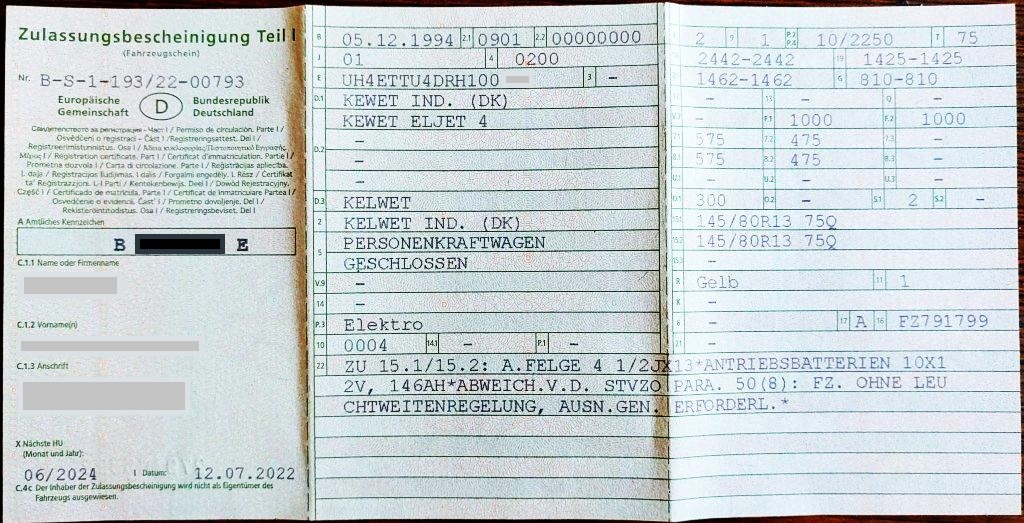 Zulassungsbescheinigung Teil I
(Fahrzeugschein)
Nr. B-S-1-193/22-00793
Europäische Gemeinschaft
D
Bundesrepublik Deutschland
Свидетелство за регистрация - Част I / Permiso de circulación. Parte I /
Osvědčení o registraci - Část I / Registreringsattest. Del I /
Registreerimistunnistus. Osa I / Άδεια κυκλοφορίας/Πιστοποιητικό Εγγραφής.
Μέρος I / Registration certificate. Part I / Certificat d'immatriculation. Partie I /
Prometna dozvola I / Carta di circolazione. Parte I / Reģistrācijas apliecība.
I. daļa / Registracijos liudijimas. I dalis / Forgalmi engedély. I. Rész / Ċertifikat
ta' Reġistrazzjoni. L-I Parti / Kentekenbewijs. Deel I / Dowód Rejestracyjny.
Część I / Certificado de matrícula. Parte I / Certificat de înmatriculare Partea I /
Osvedčenie o evidencii. Časť I / Prometno dovoljenje. Del I /
Rekisteröintitodistus. Osa I / Registreringsbeviset. Del I
A Amtliches Kennzeichen
B E
C.1.1 Name oder Firmenname
C.1.2 Vorname(n)
C.1.3 Anschrift
X Nächste HU
(Monat und Jahr):
06/2024 I Datum: 12.07.2022
C.4c Der Inhaber der Zulassungsbescheinigung wird nicht als Eigentümer des
Fahrzeugs ausgewiesen.
B 05.12.1994 2.1 0901 2.2 00000000
J 01 4 0200
E UH4ETTU4DRH100 3 –
D.1 KEWET IND. (DK)
KEWET ELJET 4
–
D.2 –
–
D.3 KELWET
2 KELWET IND. (DK)
5 PERSONENKRAFTWAGEN
GESCHLOSSEN
V.9 –
14 –
P.3 Elektro
10 0004 14.1 – P.1 –
L 2 9 1 P.2 P.4 10/2250 T 75
2442-2442 19 1425-1425
1462-1462 G 810-810
– 13 – Q –
V.7 – F.1 1000 F.2 1000
7.1 575 7.2 475 7.3 –
8.1 575 8.2 475 8.3 –
U.1 – U.2 – U.3 –
O.1 300 O.2 – S.1 2 S.2 –
15.1 145/80R13 75Q
15.2 145/80R13 75Q
15.3 –
R Gelb 11 1
K –
6 – 17 A 16 FZ791799
21 –
22 ZU 15.1/15.2: A.FELGE 4 1/2JX13*ANTRIEBSBATTERIEN 10X1
2V, 146AH*ABWEICH.V.D. STVZO PARA. 50(8): FZ. OHNE LEU
CHTWEITENREGELUNG, AUSN.GEN. ERFORDERL.*